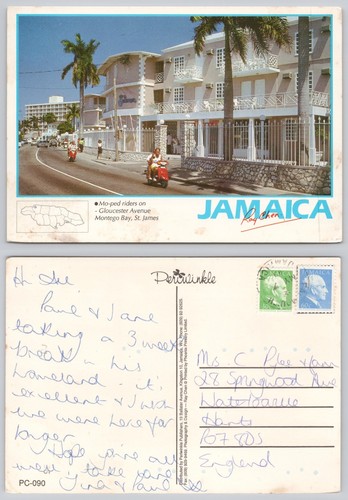 JAMAICA
Ray Chen
• Mo-ped riders on
- Gloucester Avenue
Montego Bay, St. James
JAMAICA
Periwinkle
Hi Sue.
Paul & Jane
taking a 3 week
break in his
homeland. it's
excellent & wish
we were here for
longer.
Hope you're all
well. take care
Paul
Ms. C
28 Springwood Ave
Waterlooville
Hants
PO7 8DS
England
PC-090